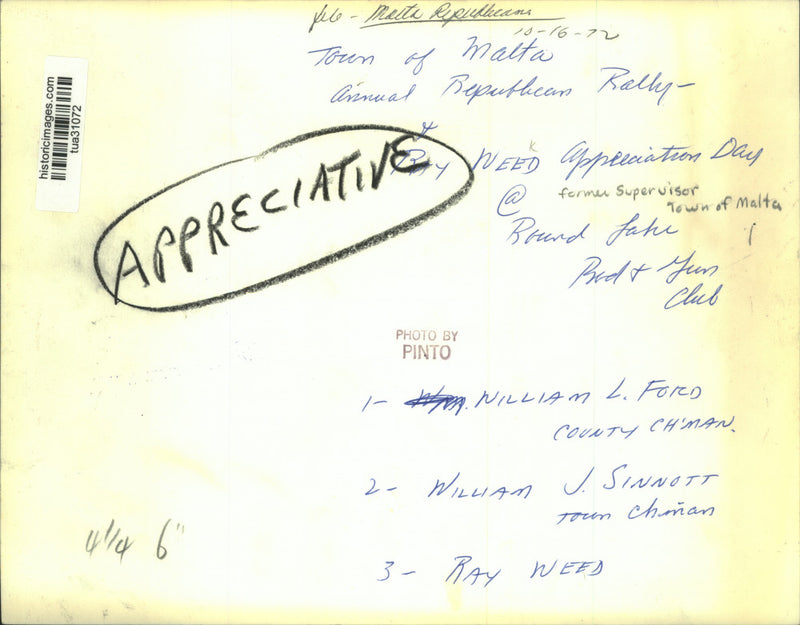 file - Malta Republicans
10-16-72
Town of Malta
Annual Republican Rally -
&
RAY WEED Appreciation Day
@ former Supervisor
Town of Malta
Round Lake
Rod & Gun
Club
APPRECIATIVE
historicimages.com
tua31072
PHOTO BY
PINTO
1- Wm. WILLIAM L. FORD
COUNTY CH'MAN.
2- WILLIAM J. SINNOTT
town Ch'man
3- RAY WEED
4 1/4 6"